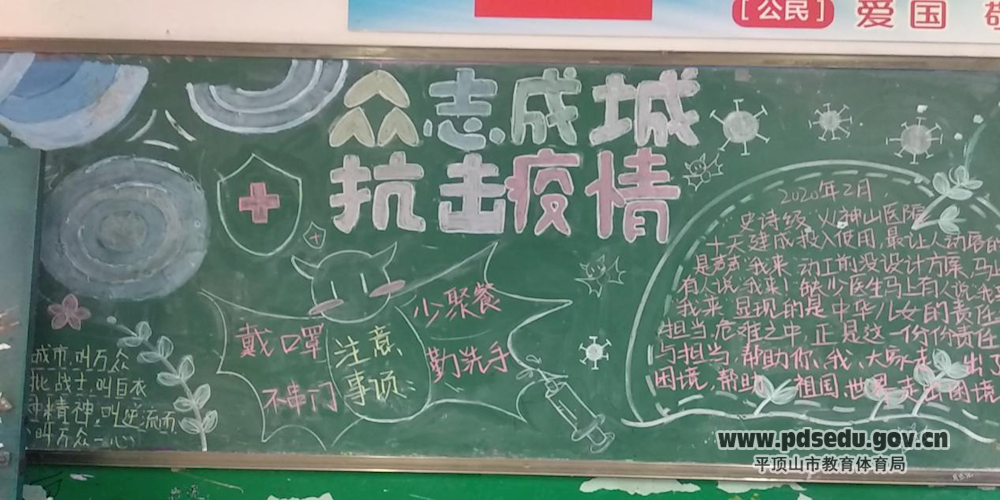 [公民] 爱国
众志成城
抗击疫情
戴口罩
少聚餐
注意
事项
勤洗手
不串门
城市,叫万众
战士,叫白衣
精神,叫逆流而
叫万众一心
2020年2月
"史诗经"火神山医院
十天建成投入使用,最让人动容的
是声声"我来"动工的没设计方案,马
有人说"我来"!缺少医生马上有人说"我
我来"显现的是中华儿女的责任
担当,危难之中,正是这一份份责任
与担当,帮助你、我、大家走出
困境,帮助 祖国,世界走出困境
www.pdsedu.gov.cn
平顶山市教育体育局